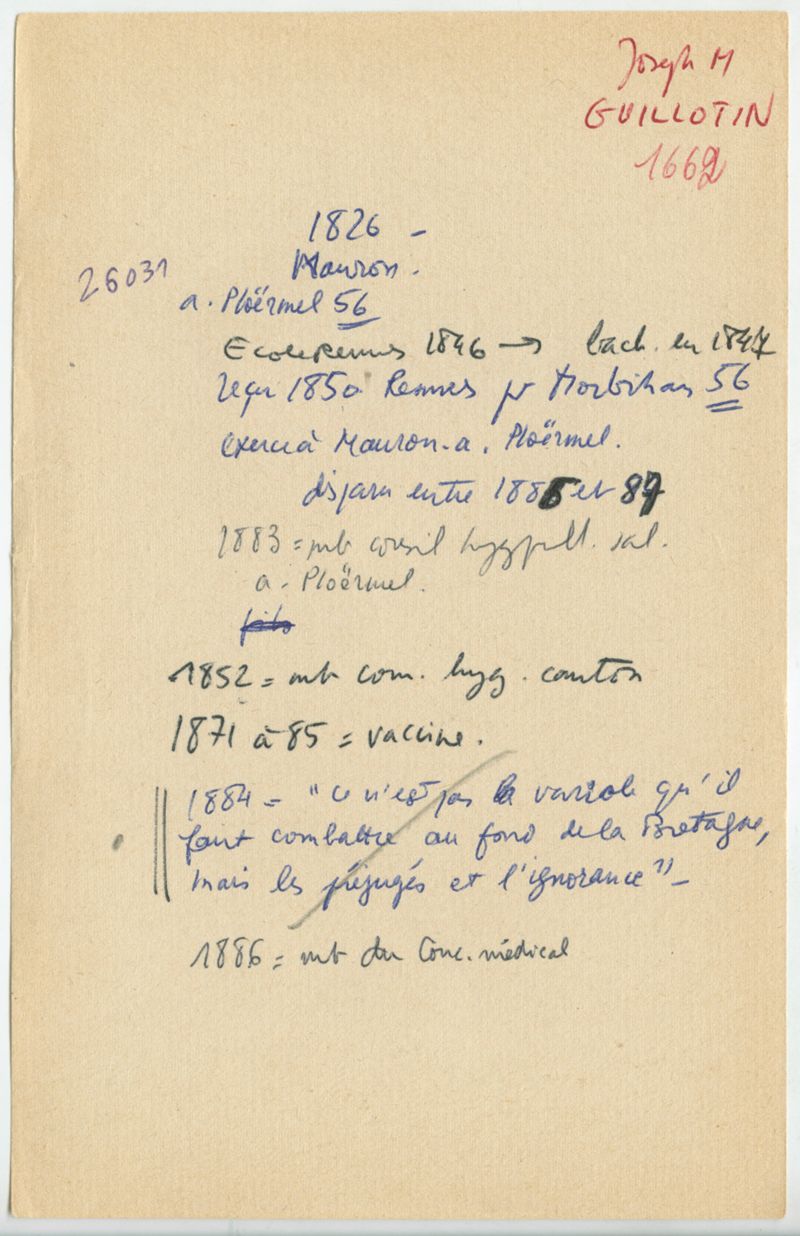 Joseph M
GUILLOTIN
1662
1826 -
Mauron.
26031
a. Ploërmel 56
Ecole Rennes 1846 → bach. en 1847
reçu 1850 Rennes pr Morbihan 56
exerce à Mauron. a. Ploërmel.
disparu entre 1886 et 87
1883 = mb conseil hyg
a. Ploërmel.
1852 = mb com. hyg. canton
1871 à 85 = vaccine.
1884 = "ce n'est pas la variole qu'il
faut combattre au fond de la Bretagne,
mais les préjugés et l'ignorance" -
1886 = mb du Conc. médical